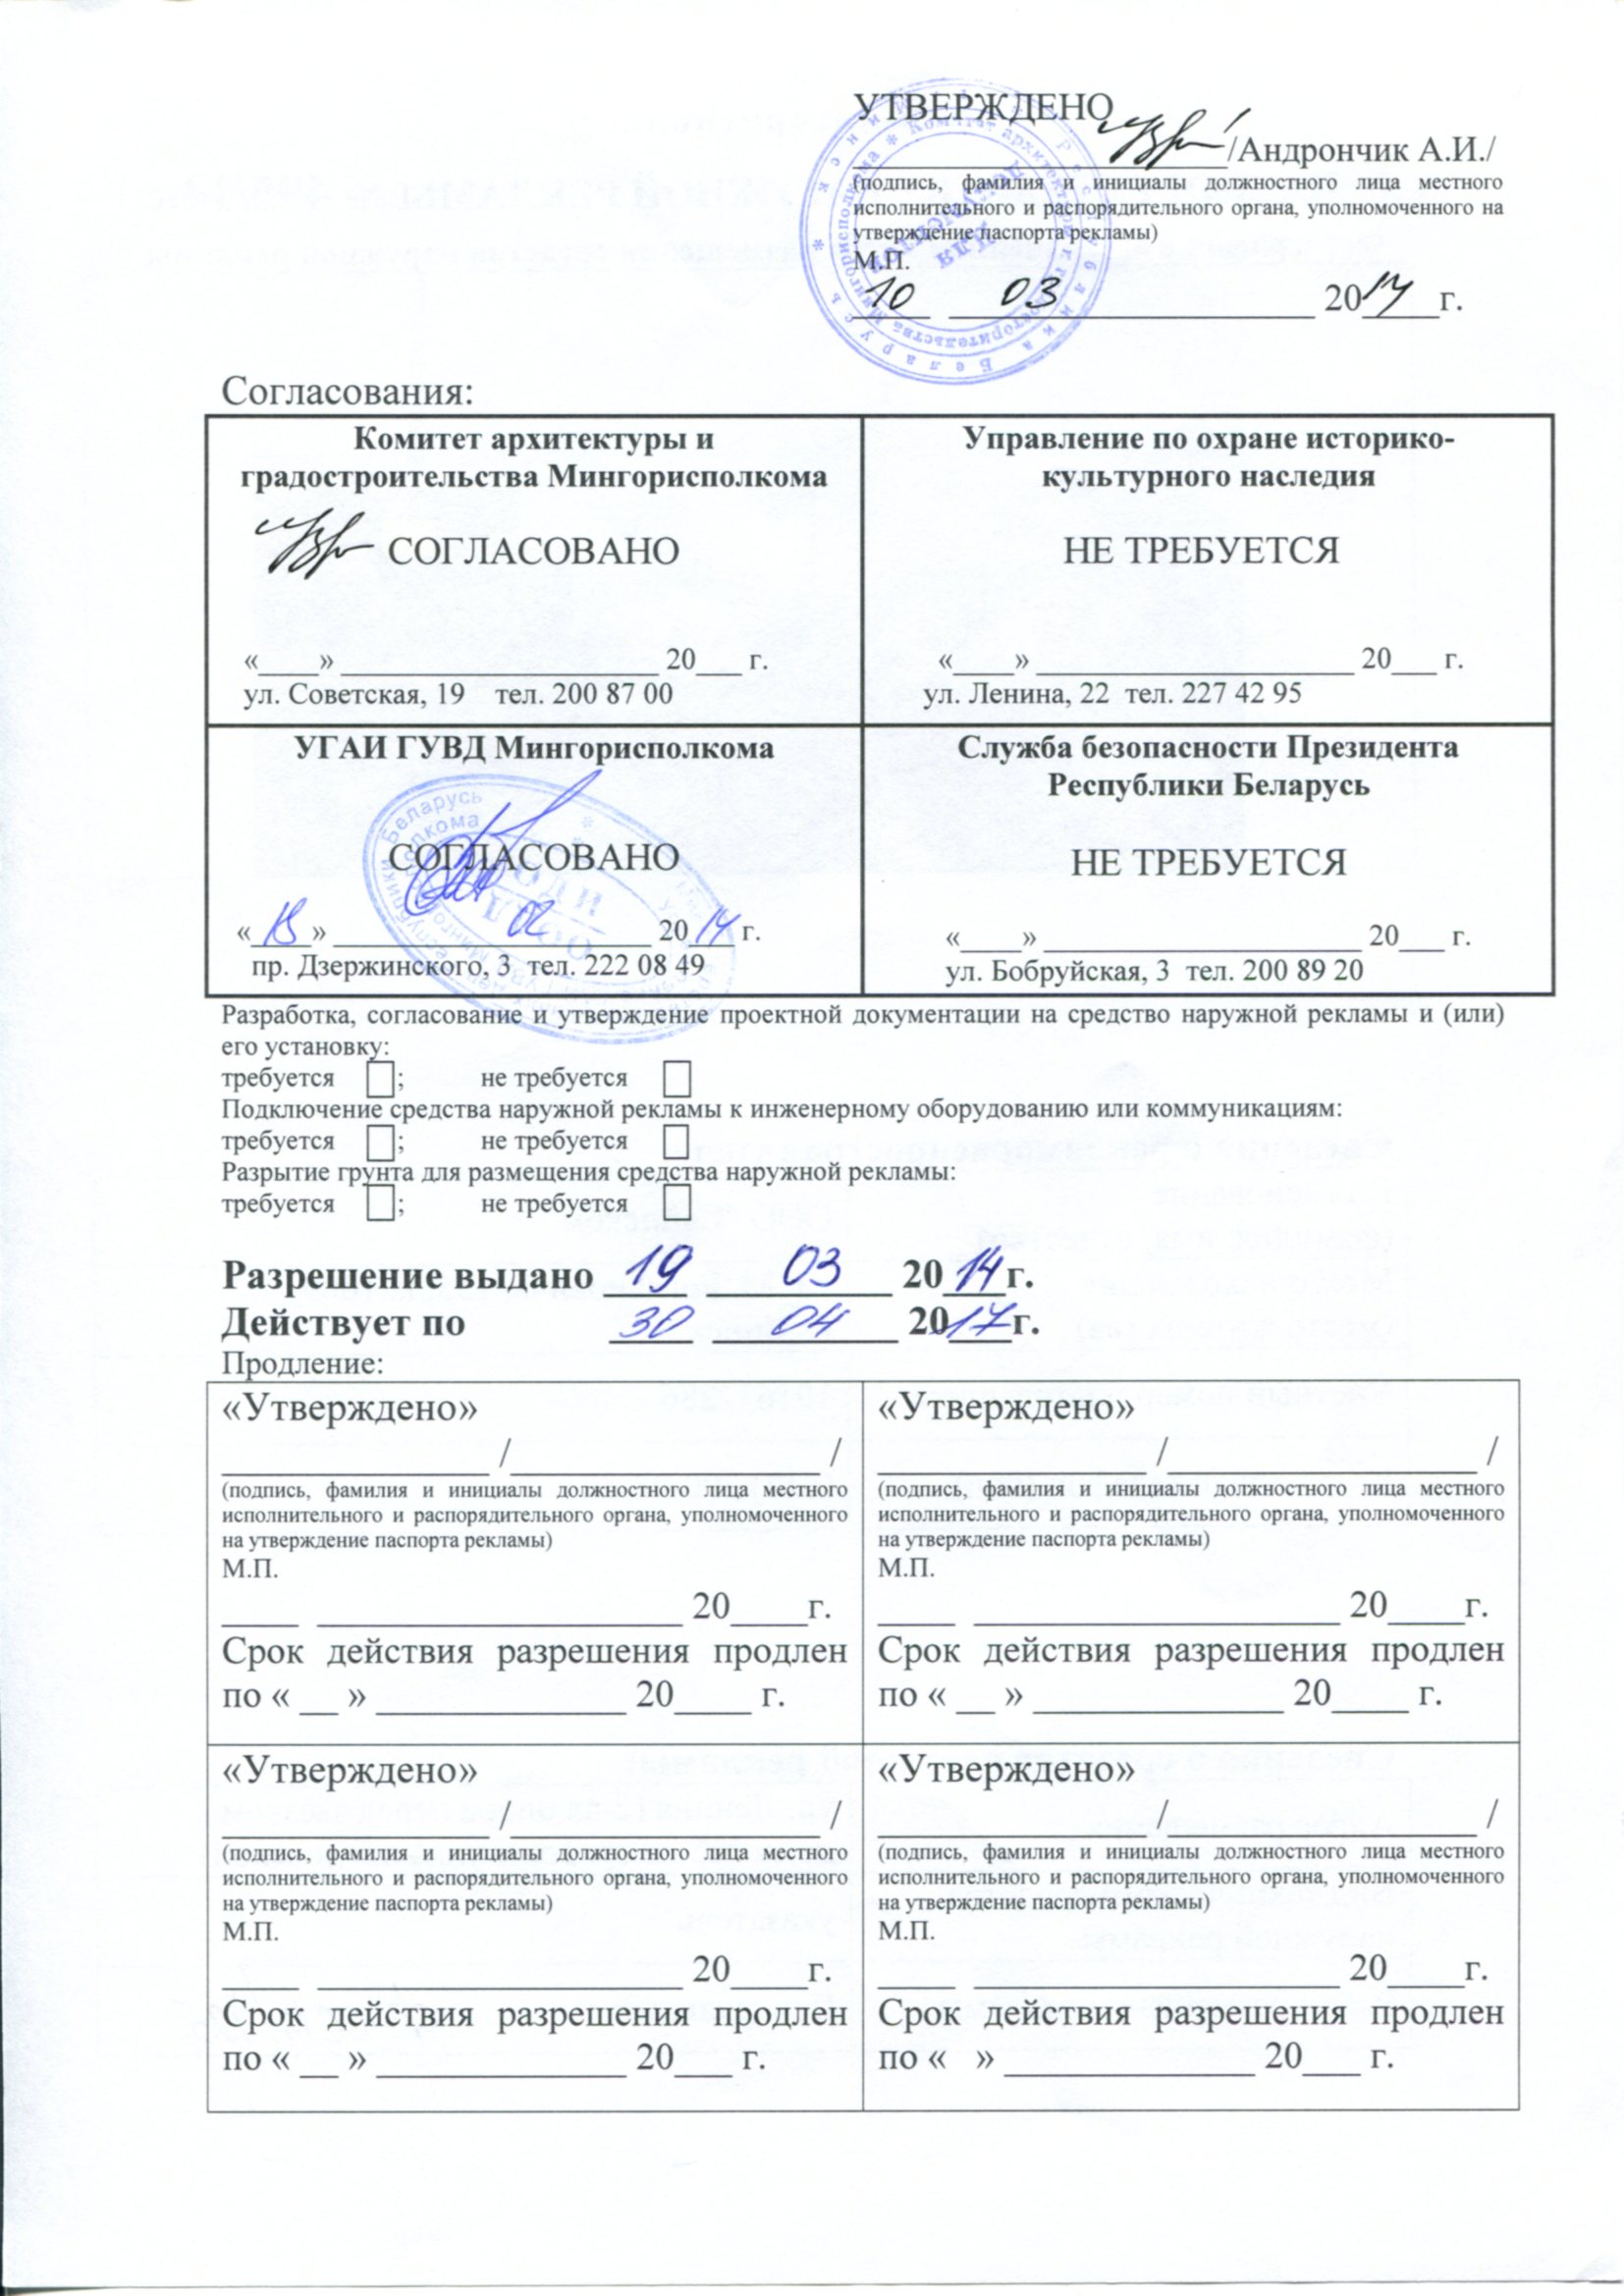 УТВЕРЖДЕНО
/Андрончик А.И./
(подпись, фамилия и инициалы должностного лица местного
исполнительного и распорядительного органа, уполномоченного на
утверждение паспорта рекламы)
М.П.
10 03 2014 г.
Согласования:
Комитет архитектуры и
градостроительства Мингорисполкома
СОГЛАСОВАНО
«____» ____________________ 20___ г.
ул. Советская, 19 тел. 200 87 00
Управление по охране историко-
культурного наследия
НЕ ТРЕБУЕТСЯ
«____» ____________________ 20___ г.
ул. Ленина, 22 тел. 227 42 95
УГАИ ГУВД Мингорисполкома
СОГЛАСОВАНО
« » 02 2014 г.
пр. Дзержинского, 3 тел. 222 08 49
Служба безопасности Президента
Республики Беларусь
НЕ ТРЕБУЕТСЯ
«____» ____________________ 20___ г.
ул. Бобруйская, 3 тел. 200 89 20
Разработка, согласование и утверждение проектной документации на средство наружной рекламы и (или)
его установку:
требуется ; не требуется
Подключение средства наружной рекламы к инженерному оборудованию или коммуникациям:
требуется ; не требуется
Разрытие грунта для размещения средства наружной рекламы:
требуется ; не требуется
Разрешение выдано 19 03 2014г.
Действует по 30 04 2017г.
Продление:
«Утверждено»
______________ /________________ /
(подпись, фамилия и инициалы должностного лица местного
исполнительного и распорядительного органа, уполномоченного
на утверждение паспорта рекламы)
М.П.
____ ___________________ 20____г.
Срок действия разрешения продлен
по « __ » _____________ 20____ г.
«Утверждено»
______________ /________________ /
(подпись, фамилия и инициалы должностного лица местного
исполнительного и распорядительного органа, уполномоченного
на утверждение паспорта рекламы)
М.П.
____ ___________________ 20____г.
Срок действия разрешения продлен
по « __ » _____________ 20____ г.
«Утверждено»
______________ /________________ /
(подпись, фамилия и инициалы должностного лица местного
исполнительного и распорядительного органа, уполномоченного
на утверждение паспорта рекламы)
М.П.
____ ___________________ 20____г.
Срок действия разрешения продлен
по « __ » _____________ 20___ г.
«Утверждено»
______________ /________________ /
(подпись, фамилия и инициалы должностного лица местного
исполнительного и распорядительного органа, уполномоченного
на утверждение паспорта рекламы)
М.П.
____ ___________________ 20____г.
Срок действия разрешения продлен
по « » _____________ 20___ г.